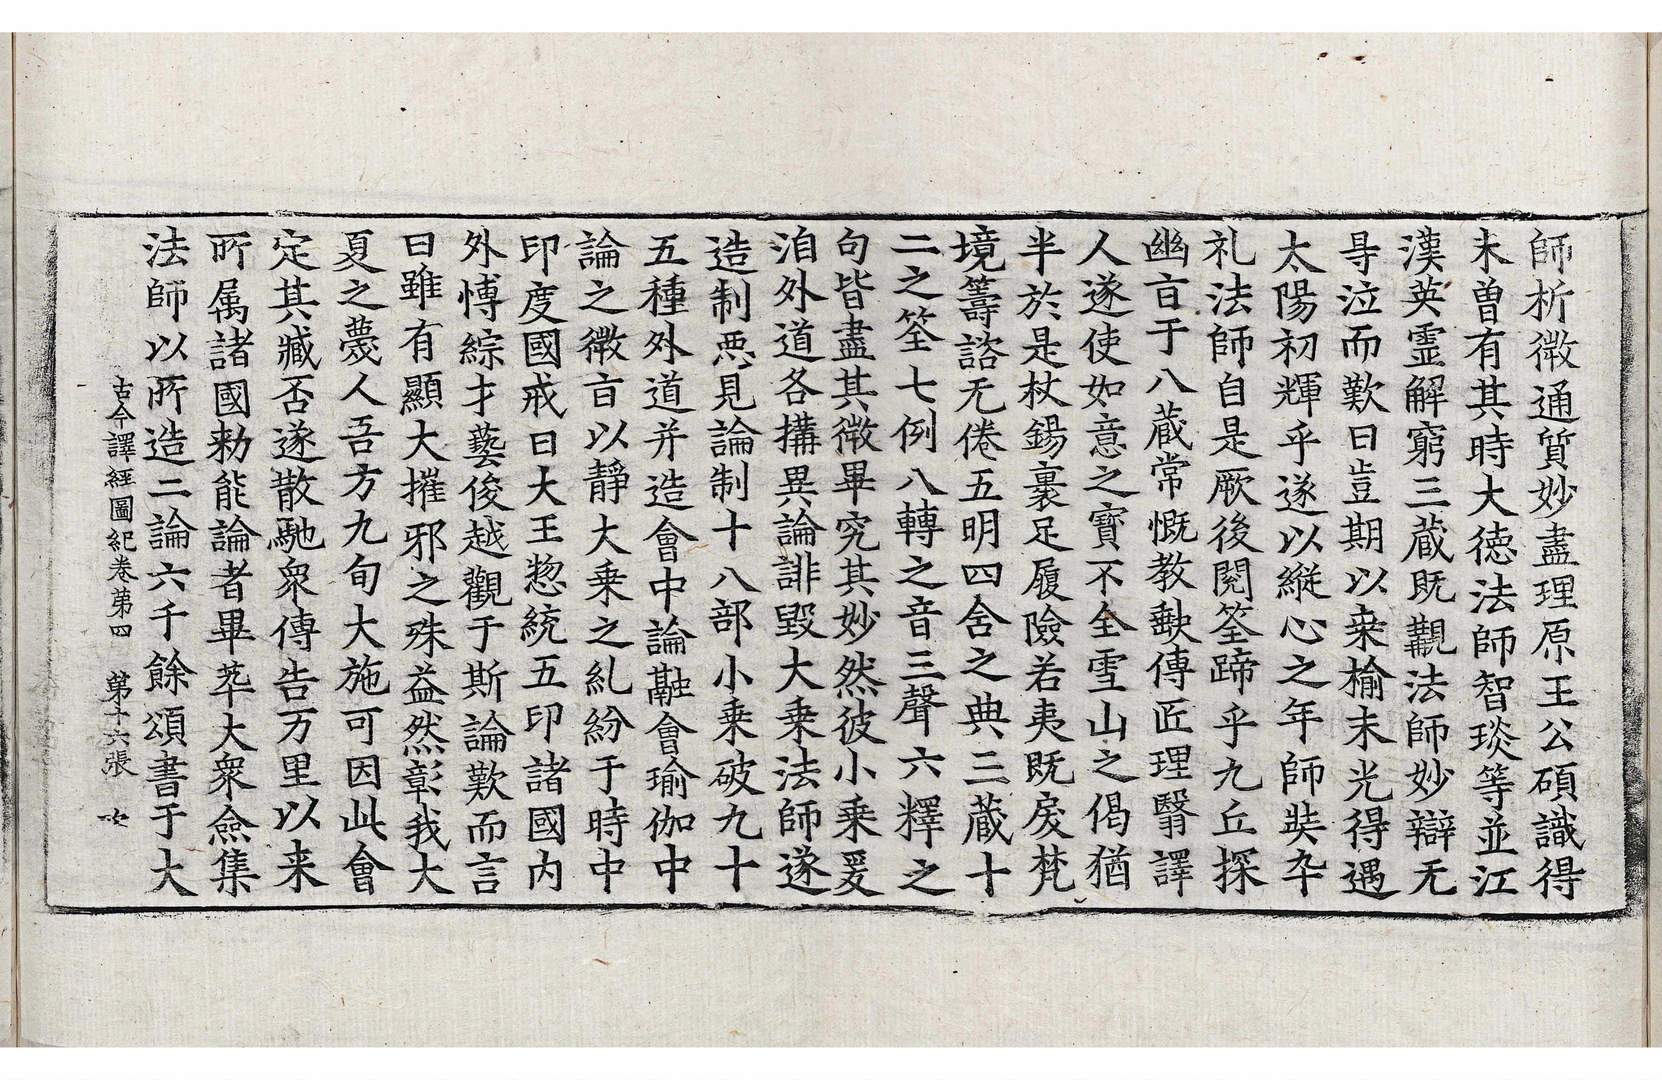 師析微通質妙盡理原王公碩識得
未曽有其時大德法師智琰等並江
漢英靈解窮三藏既覩法師妙辯无
㝵泣而歎曰豈期以桒榆末光得遇
太陽初輝乎遂以縱心之年師奘卆
礼法師自是厥後閱筌蹄乎九丘探
幽旨于八藏常慨教缺傳匠理翳譯
人遂使如意之寶不全雪山之偈猶
半於是杖錫裹足履險若夷既戾梵
境籌諮无倦五明四舍之典三藏十
二之筌七例八轉之音三聲六釋之
句皆盡其微畢究其妙然彼小乘爰
洎外道各搆異論誹毀大乘法師遂
造制惡見論制十八部小乘破九十
五種外道并造會中論融會瑜伽中
論之微旨以靜大乘之糺紛于時中
印度國戒日大王惣統五印諸國内
外愽綜才藝俊越觀于斯論歎而言
曰雖有顯大摧邪之殊益然彰我大
夏之薆人吾方九旬大施可因此會
定其臧否遂散馳衆傳告万里以来
所属諸國勑能論者畢萃大衆僉集
法師以所造二論六千餘頌書于大
古今譯經圖紀卷苐四 苐十六張